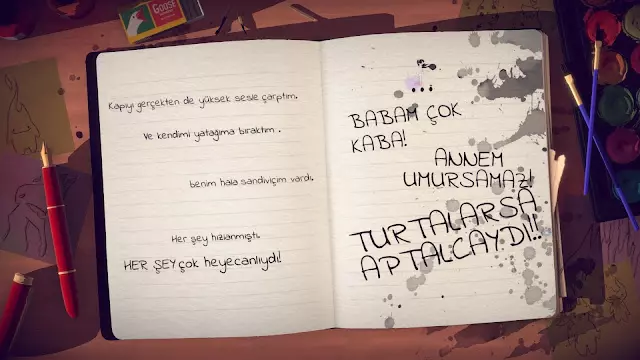 GOOSE
Kapıyı gerçekten de yüksek sesle çarptım.
Ve kendimi yatağıma bıraktım .
benim hala sandiviçim vardı.
Her şey hızlanmıştı.
HER ŞEY çok heyecanlıydı!
BABAM ÇOK
KABA!
ANNEM
UMURSAMAZ!
TURTALARSA
APTALCAYDI!!